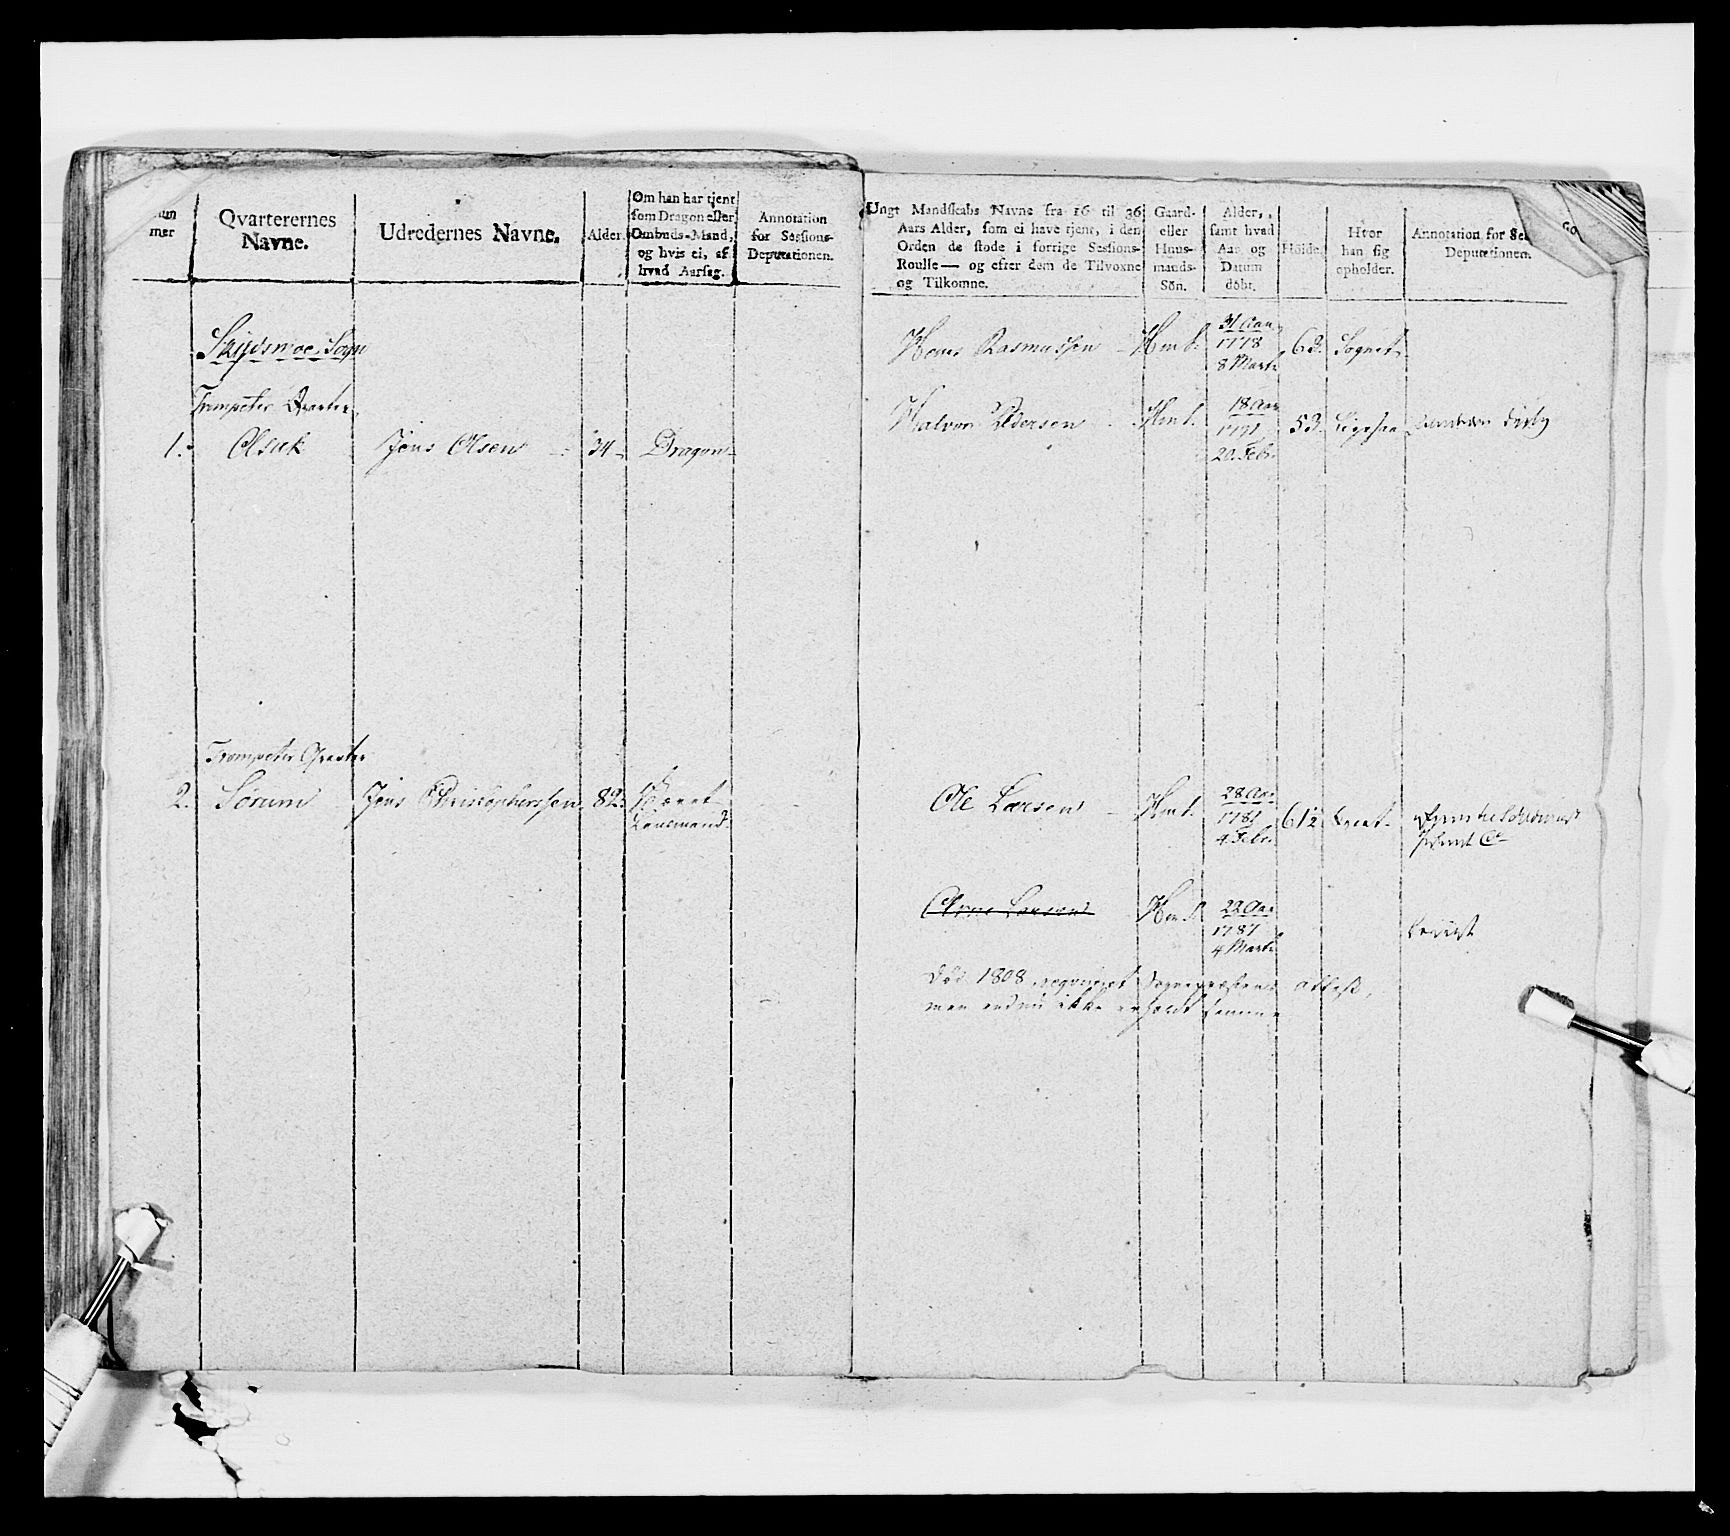 mer
Qvarterernes
Navne.
Udredernes Navne.
Alder.
Om han har tjent
som Dragon eller
Ombuds-Mand,
og hvis ei, af
hvad Aarsag.
Annotation
for Sessions-
Deputationen.
Ungt Mandskabs Navne fra 16 til 36
Aars Alder, som ei have tjent, i den
Orden de stode i forrige Sessions-
Roulle — og efter dem de Tilvoxne
og Tilkomne.
Gaard-
eller
Huus-
mands-
Sön.
Alder,
samt hvad
Aar og
Datum
döbt.
Höide.
Hvor
han sig
opholder.
Annotation for
Deputationen.
Skydsmoe Sogn
Trompeter Qvarteer
1. Olsuk Jens Olsen 34 Dragon
Hans Rasmussen Hmd. 31 Aar
1778
8 Marti
62. Sognet
Halvor Pedersen Hmd. 18 Aar
1791
20. Febr.
53.
Trompeter Qvarteer
2. Sörum Jens Christophersen 82.
Lensmand
Ole Larsen Hmd. 28 Aar
1781
4 Febr.
61½
Arne Larsen Hmd. 22 Aar
1787
4 Marti
död 1808, Sognepræstens attest,
men endnu ikke